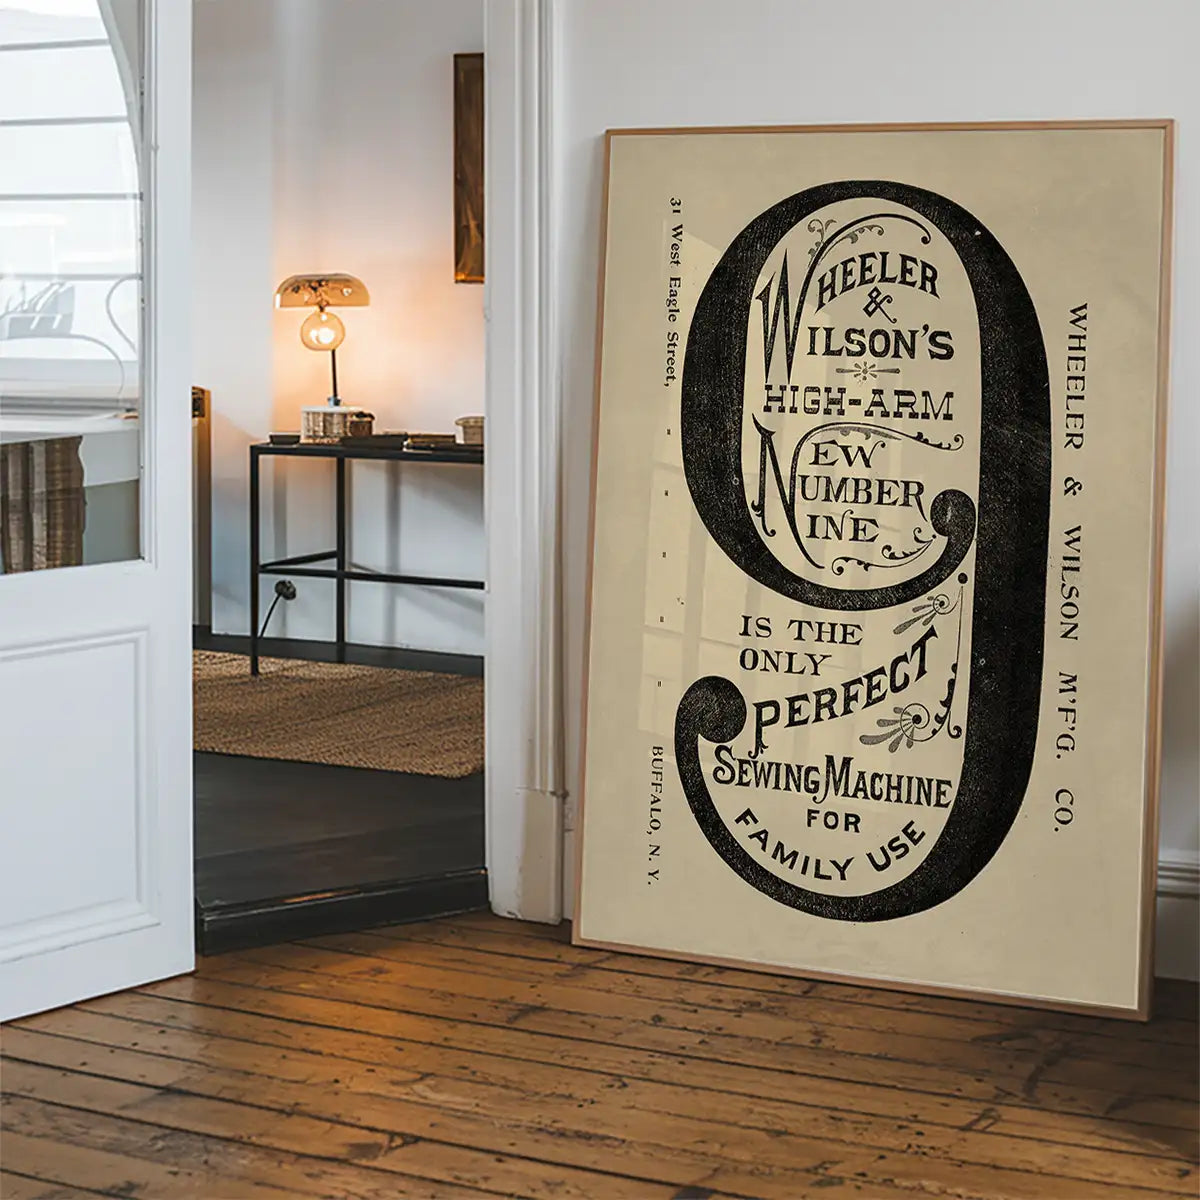 31 West Eagle Street,
BUFFALO, N. Y.
9
WHEELER
&
WILSON'S
HIGH-ARM
NEW
NUMBER
NINE
IS THE
ONLY
PERFECT
SEWING MACHINE
FOR
FAMILY USE
WHEELER & WILSON M'F'G. CO.